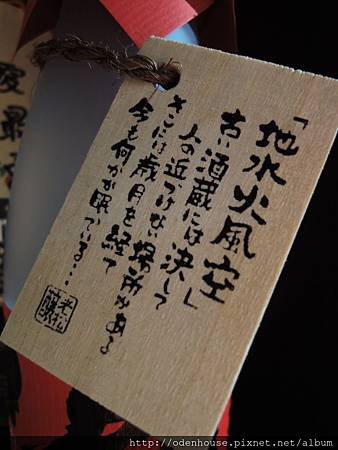 「地水火風空」
古い酒蔵には決して
人の近づけない場所がある
そこには歳月を経て
今も何かが眠っている…
http://odenhouse.pixnet.net/album